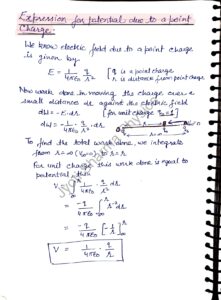 Expression for potential due to a point
Charge:
We know electric field due to a point charge
is given by
E = 1/4πε₀ q/r² [q is a point charge
r is distance from point charge
Now work done in moving the charge over a
small distance dr against the electric field
dw = -E.dr [for unit charge q₀=1]
dw = -1/4πε₀ . q/r² . dr
To find the total work done, we integrate
from r=∞ (V∞=0) to r=r
For unit charge this work done is equal to
potential thus
V = -∫ 1/4πε₀ . q/r² . dr
= -q/4πε₀ ∫ r⁻² dr
= -q/4πε₀ [-1/r]
V = 1/4πε₀ . q/r